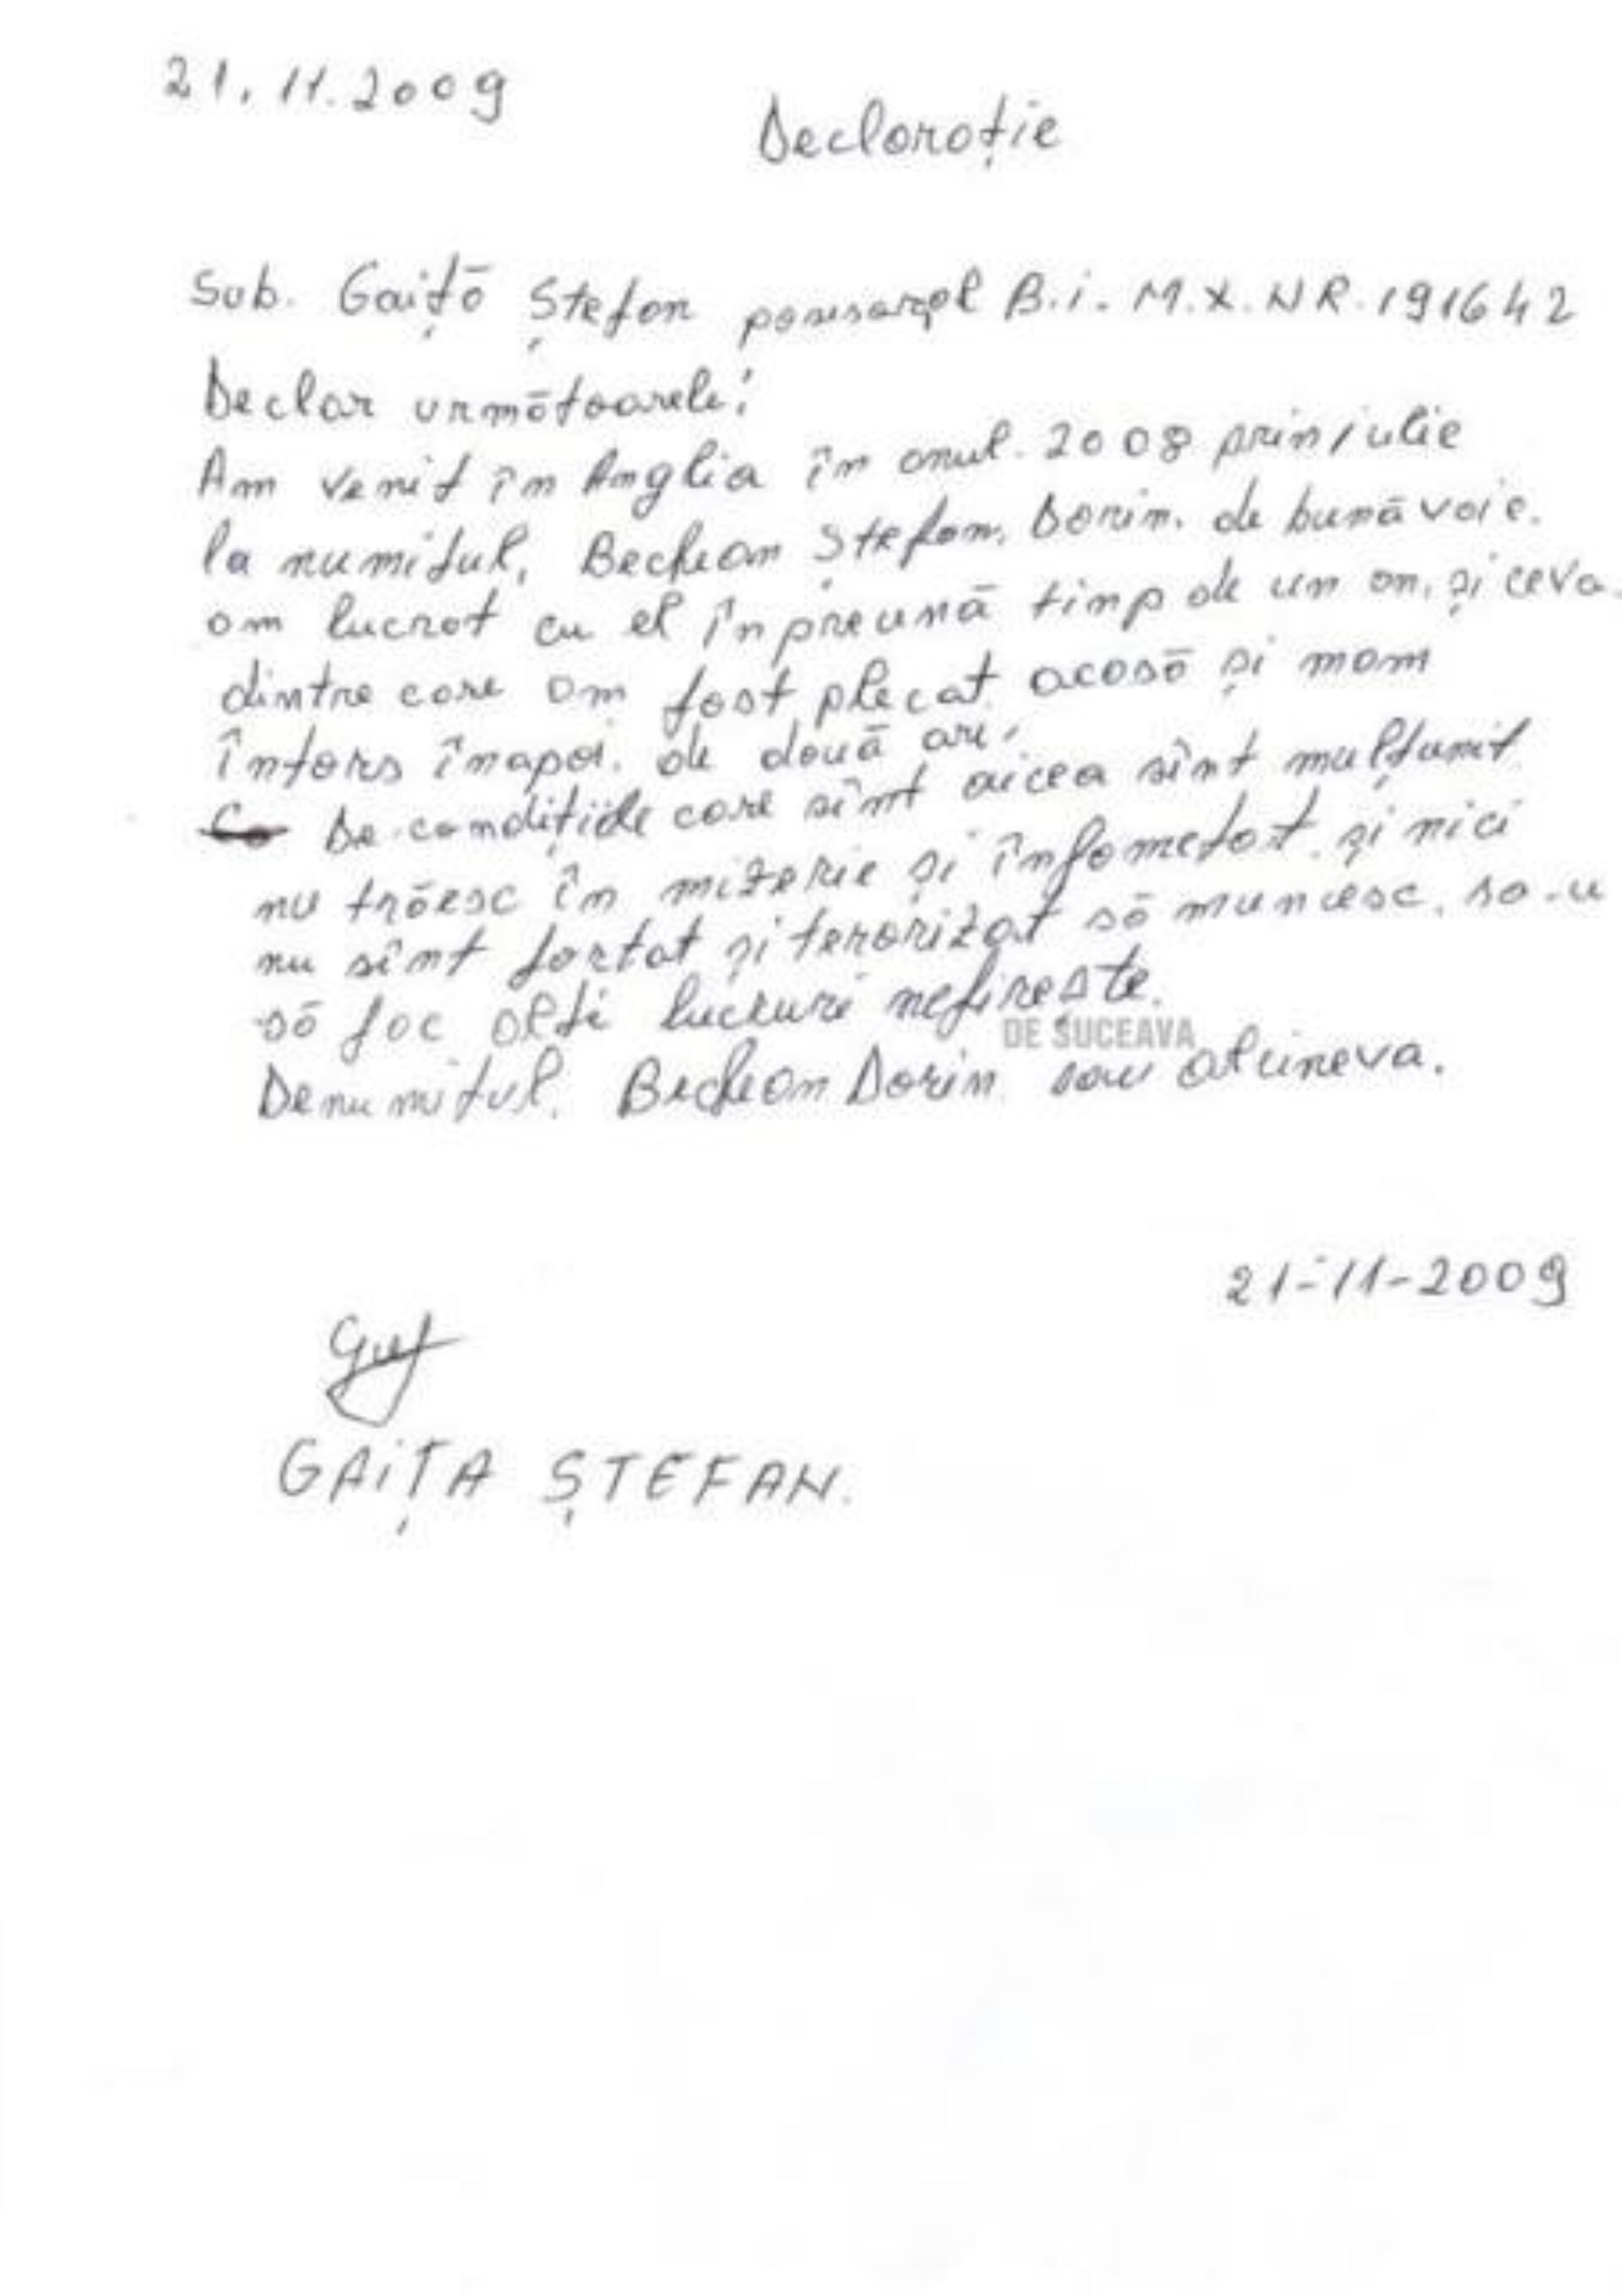 21.11.2009
Declarație
Sub. Gaiță Ștefan posesorul B.i. M.X. NR. 191642
Declar următoarele:
Am venit în Anglia în anul. 2008 prin iulie
la numitul, Beclean Ștefan, Dorin. de bună voie.
am lucrat cu el înpreună timp de un an, și ceva.
dintre care am fost plecat acasă și mam
întors înapoi. de două ori,
De condițiile care sînt aicea sînt mulțumit
nu trăesc în mizerie și înfometat. și nici
nu sînt forțat și terorizat să muncesc, sa-u
să fac alte lucruri nefirește.
DE SUCEAVA
Denumitul. Beclean Dorin sau altcineva.
21-11-2009
GAIȚA ȘTEFAN.